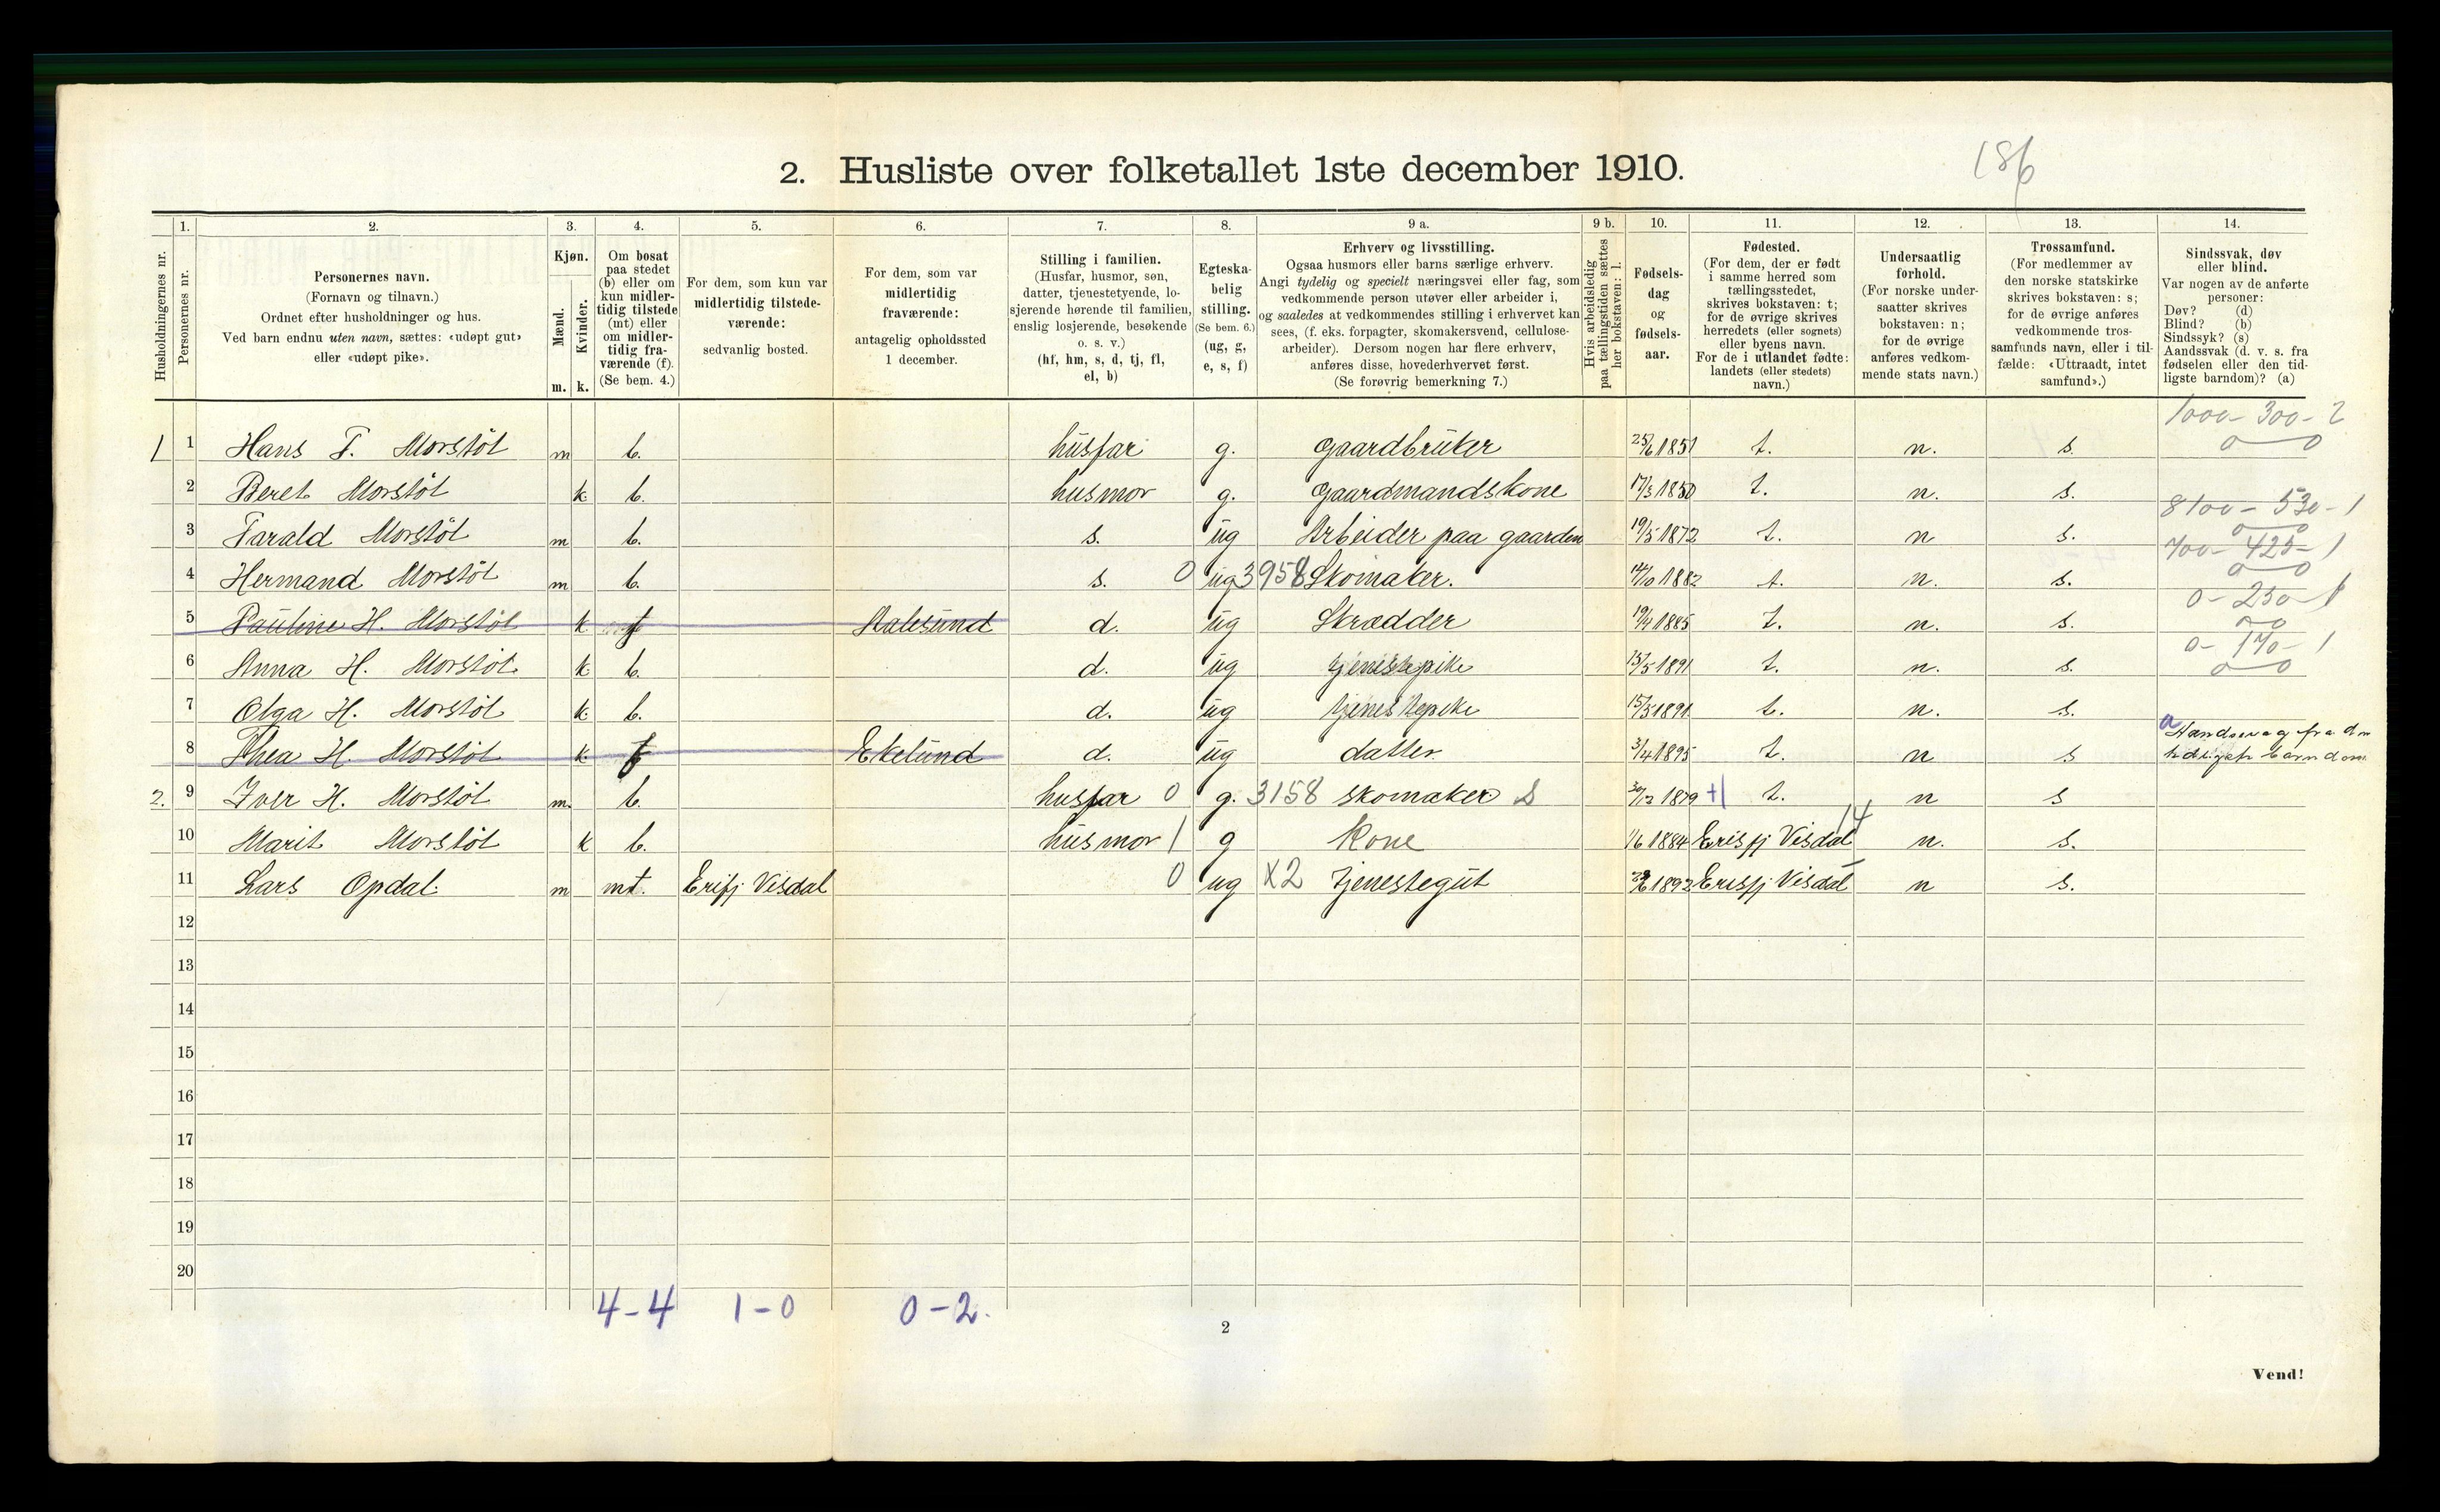 2. Husliste over folketallet 1ste december 1910.
186
1. 2. 3. 4. 5. 6. 7. 8. 9 a. 9 b. 10. 11. 12. 13. 14.
Husholdningernes nr.
Personernes nr.
Personernes navn.
(Fornavn og tilnavn.)
Ordnet efter husholdninger og hus.
Ved barn endnu uten navn, sættes: «udøpt gut»
eller «udøpt pike».
Kjøn.
Mænd.
Kvinder.
m. k.
Om bosat
paa stedet
(b) eller om
kun midler-
tidig tilstede
(mt) eller
om midler-
tidig fra-
værende (f).
(Se bem. 4.)
For dem, som kun var
midlertidig tilstede-
værende:
sedvanlig bosted.
For dem, som var
midlertidig
fraværende:
antagelig opholdssted
1 december.
Stilling i familien.
(Husfar, husmor, søn,
datter, tjenestetyende, lo-
sjerende hørende til familien,
enslig losjerende, besøkende
o. s. v.)
(hf, hm, s, d, tj, fl,
el, b)
Egteska-
belig
stilling.
(Se bem. 6.)
(ug, g,
e, s, f)
Erhverv og livsstilling.
Ogsaa husmors eller barns særlige erhverv.
Angi tydelig og specielt næringsvei eller fag, som
vedkommende person utøver eller arbeider i,
og saaledes at vedkommendes stilling i erhvervet kan
sees, (f. eks. forpagter, skomakersvend, cellulose-
arbeider). Dersom nogen har flere erhverv,
anføres disse, hovederhvervet først.
(Se forøvrig bemerkning 7.)
Hvis arbeidsledig
paa tællingstiden sættes
her bokstaven: l.
Fødsels-
dag
og
fødsels-
aar.
Fødested.
(For dem, der er født
i samme herred som
tællingsstedet,
skrives bokstaven: t;
for de øvrige skrives
herredets (eller sognets)
eller byens navn.
For de i utlandet fødte:
landets (eller stedets)
navn.)
Undersaatlig
forhold.
(For norske under-
saatter skrives
bokstaven: n;
for de øvrige
anføres vedkom-
mende stats navn.)
Trossamfund.
(For medlemmer av
den norske statskirke
skrives bokstaven: s;
for de øvrige anføres
vedkommende tros-
samfunds navn, eller i til-
fælde: «Uttraadt, intet
samfund».)
Sindssvak, døv
eller blind.
Var nogen av de anførte
personer:
Døv? (d)
Blind? (b)
Sindssyk? (s)
Aandssvak (d. v. s. fra
fødselen eller den tid-
ligste barndom)? (a)
1000 - 300 - 2
1 1 Hans T. Morstöl m b. husfar g. gaardbruker 25/6 1851 t. n. s. 0 0
2 Beret Morstöl k b. husmor g. gaardmandskone 17/3 1850 t. n. s.
8100 - 530 - 1
3 Tarald Morstöl m b. s. ug Arbeider paa gaarden 19/5 1872 t. n s. 0 0
700 - 425 - 1
4 Hermand Morstöl m b. s. 0 ug 3958 Skomaker. 14/10 1882 t. n. s. 0 0
0 - 250 - 1
5 Pauline H. Morstöl k f Aalesund d. ug Skrædder 19/4 1885 t. n. s. 0 0
0 - 170 - 1
6 Anna H. Morstöl k b. d. ug tjenestepike 15/5 1891 t. n. s. 0 0
7 Olga H. Morstöl k b. d. ug tjenestepike 15/5 1891 t. n. s.
8 Thea H. Morstöl k f Ekelund d. ug datter 3/4 1895 t. n s
2. 9 Iver H. Morstöl m. b. husfar 0 g. 3158 skomaker S 30/12 1879 +1 t. n s
10 Marit Morstöl k b. husmor 1 g Kone 1/6 1884 Erisfj Visdal 14 n. s.
11 Lars Opdal. m mt. Erifj Visdal 0 ug X2 Tjenestegut 1892 Erisfj Visdal n s.
12
13
14
15
16
17
18
19
20
4 - 4 1 - 0 0 - 2.
2
Vend!